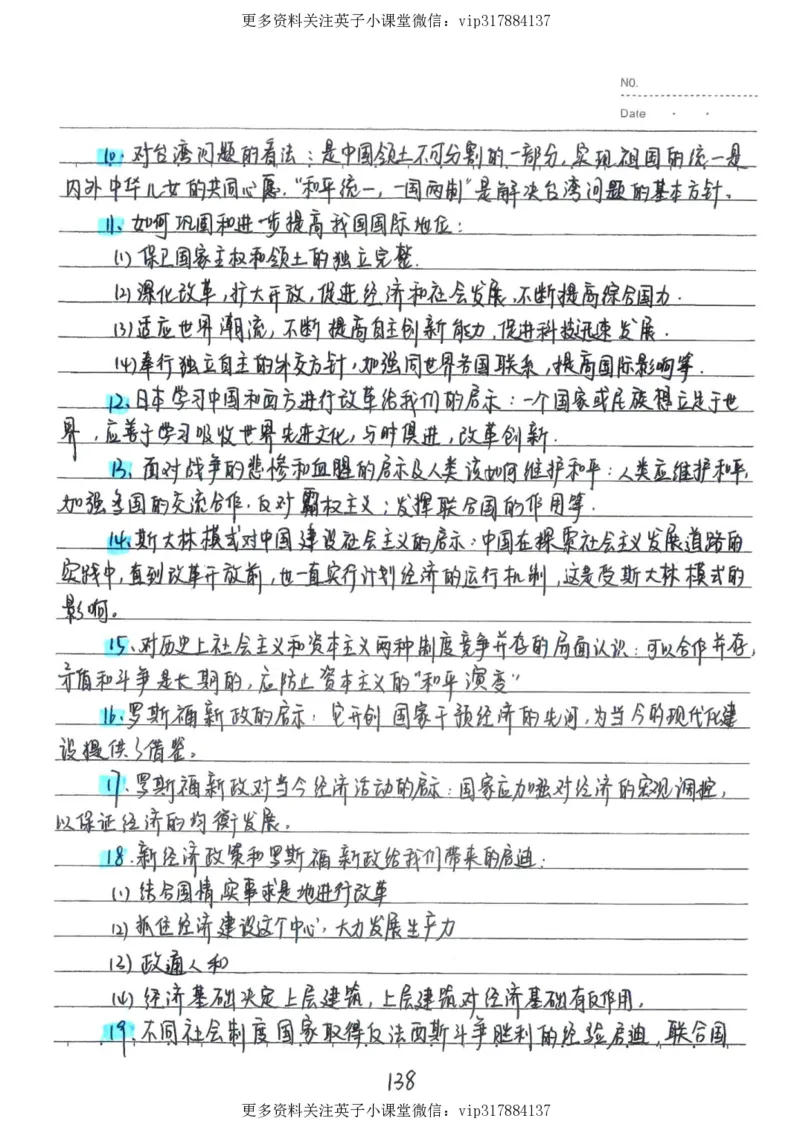 更多资料关注英子小课堂微信：vip317884137
NO.
Date
10、对台湾问题的看法：是中国领土不可分割的一部分，实现祖国的统一是
内外中华儿女的共同心愿．“和平统一，一国两制”是解决台湾问题的基本方针。
11、如何巩固和进一步提高我国国际地位：
(1) 保卫国家主权和领土的独立完整．
(2) 深化改革，扩大开放，促进经济和社会发展，不断提高综合国力．
(3) 适应世界潮流，不断提高自主创新能力，促进科技迅速发展．
(4) 奉行独立自主的外交方针，加强同世界各国联系，提高国际影响等．
12、日本学习中国和西方进行改革给我们的启示：一个国家或民族想立足于世
界，应善于学习吸收世界先进文化，与时俱进，改革创新．
13、面对战争的悲惨和血腥的启示及人类该如何维护和平：人类应维护和平，
加强各国的交流合作．反对霸权主义；发挥联合国的作用等．
14、斯大林模式对中国建设社会主义的启示：中国在探索社会主义发展道路的
实践中，直到改革开放前，也一直实行计划经济的运行机制，这是受斯大林模式的
影响。
15、对历史上社会主义和资本主义两种制度竞争并存的局面认识：可以合作并存，
矛盾和斗争是长期的，应防止资本主义的“和平演变”
16、罗斯福新政的启示：它开创国家干预经济的先河，为当今的现代化建
设提供了借鉴。
17、罗斯福新政对当今经济活动的启示：国家应加强对经济的宏观调控，
以保证经济的均衡发展．
18、新经济政策和罗斯福新政给我们带来的启迪：
(1) 结合国情实事求是地进行改革
(2) 抓住经济建设这个中心，大力发展生产力
(3) 政通人和
(4) 经济基础决定上层建筑，上层建筑对经济基础有反作用．
19、不同社会制度国家取得反法西斯斗争胜利的经验启迪，联合国
138
更多资料关注英子小课堂微信：vip317884137